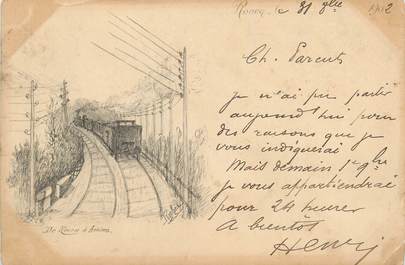 Roncq, le 31 8bre 1902
Ch. Parents
Je n'ai pu partir
aujourd'hui pour
des raisons que je
vous indiquerai
Mais demain 1er 9bre
je vous appartiendrai
pour 24 heures
A bientôt
Henri
De Roncq à